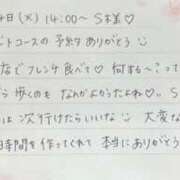 4日(火) 14:00〜 S様♡
ートコースの予約ありがとう
店でフレンチ食べて♡ 何する〜?って
ら歩くのも なんかよかったよね♡。S
は 次行けたらいいな 大変な
日時間を作ってくれて 本当にありがとう